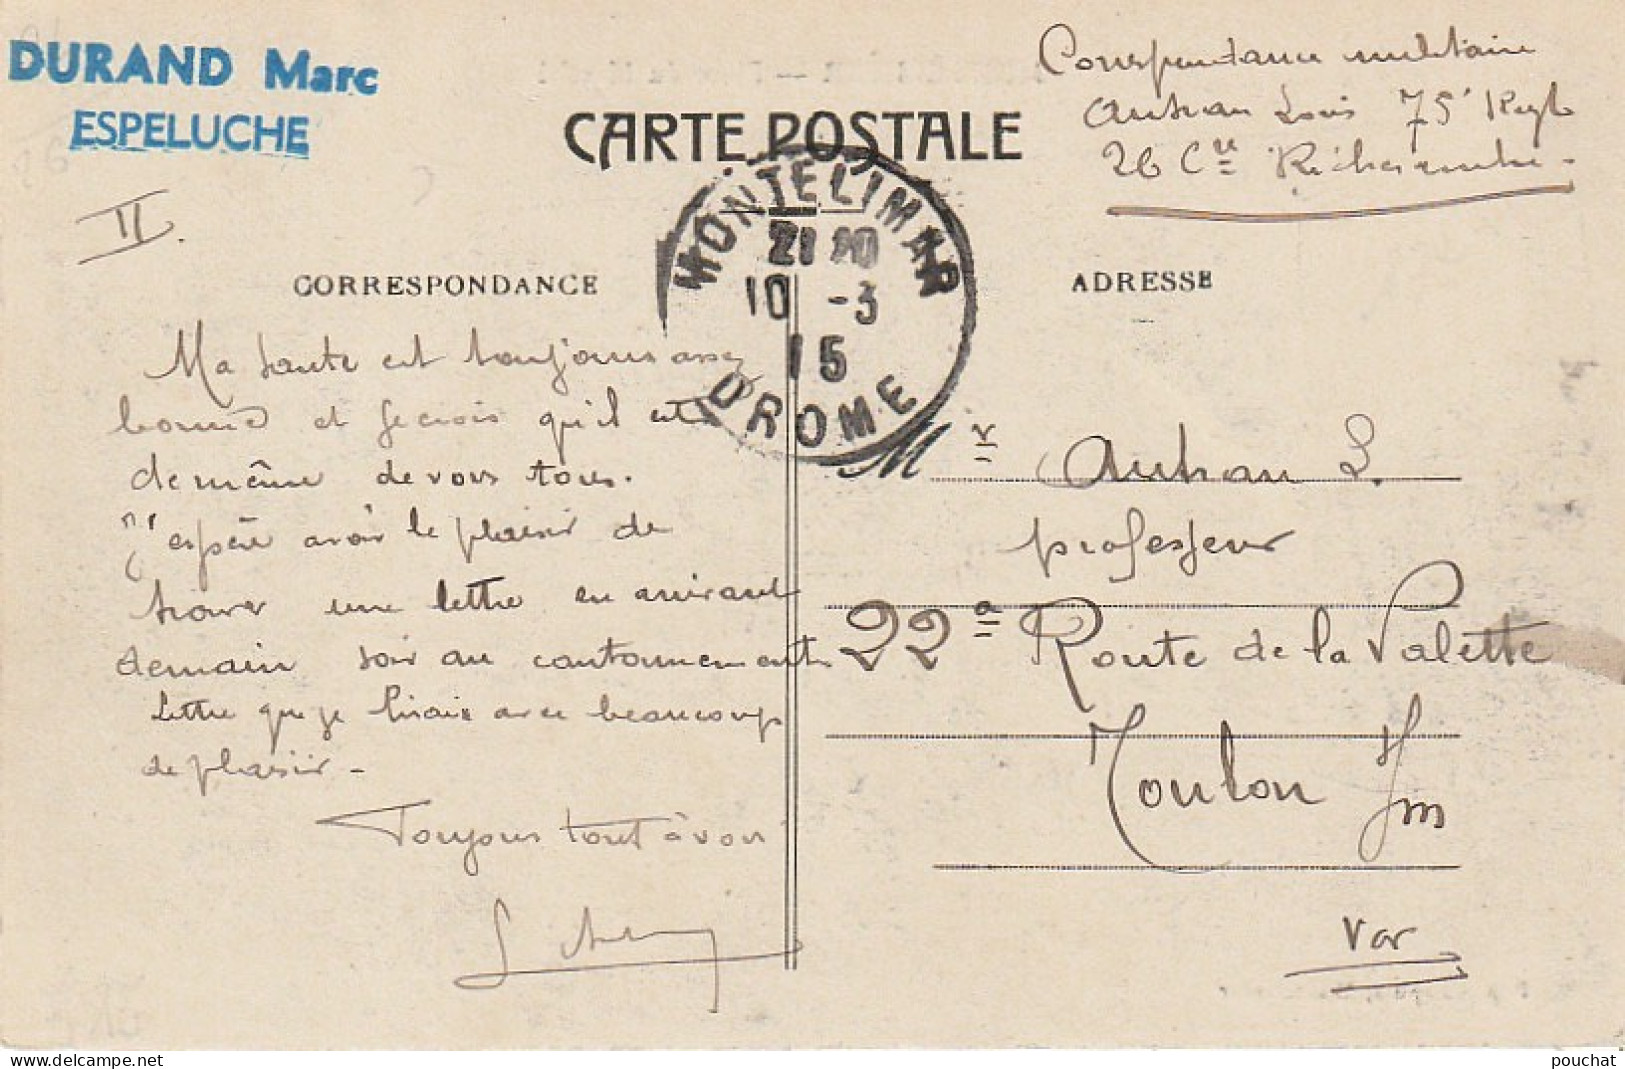 DURAND Marc
ESPELUCHE
II.
CARTE POSTALE
Correspondance militaire
Autran Louis 75e Regt
26 Cie
MONTELIMAR
21 20
10 -3
15
DROME
CORRESPONDANCE
Ma santé est toujours assez
bonne et je crois qu'il est
de même de vous tous.
J'espère avoir le plaisir de
trouver une lettre en arrivant
demain soir au cantonnement
lettre que je lirais avec beaucoup
de plaisir -
Toujours tout à vous
ADRESSE
Mr Autran L.
professeur
22a Route de la Valette
Toulon
Var
delcampe.net
pouchat